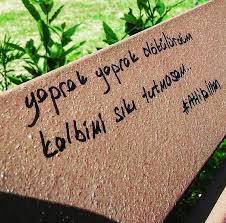 yaprak yaprak dökülürdüm
kalbimi sıkı tutmasam..
#Attilailhan